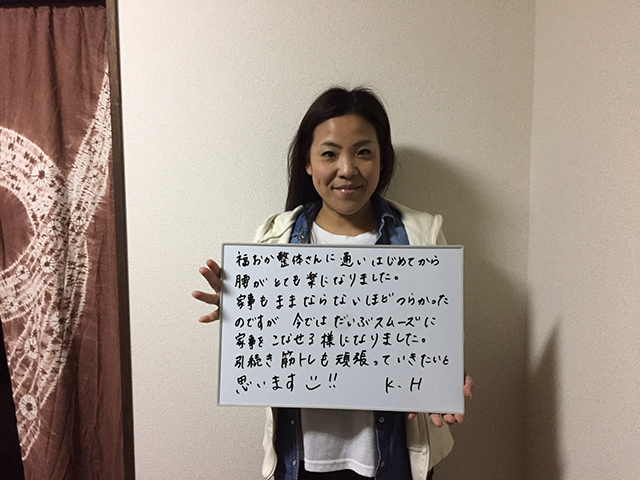 福おか整体さんに通いはじめてから
腰がとても楽になりました。
家事もままならないほどつらかった
のですが 今ではだいぶスムーズに
家事をこなせる様になりました。
引続き筋トレも頑張っていきたいと
思います!! K.H